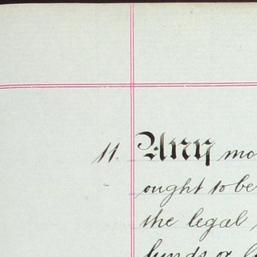 11. Any mo
ought to be
the legal
funds or l